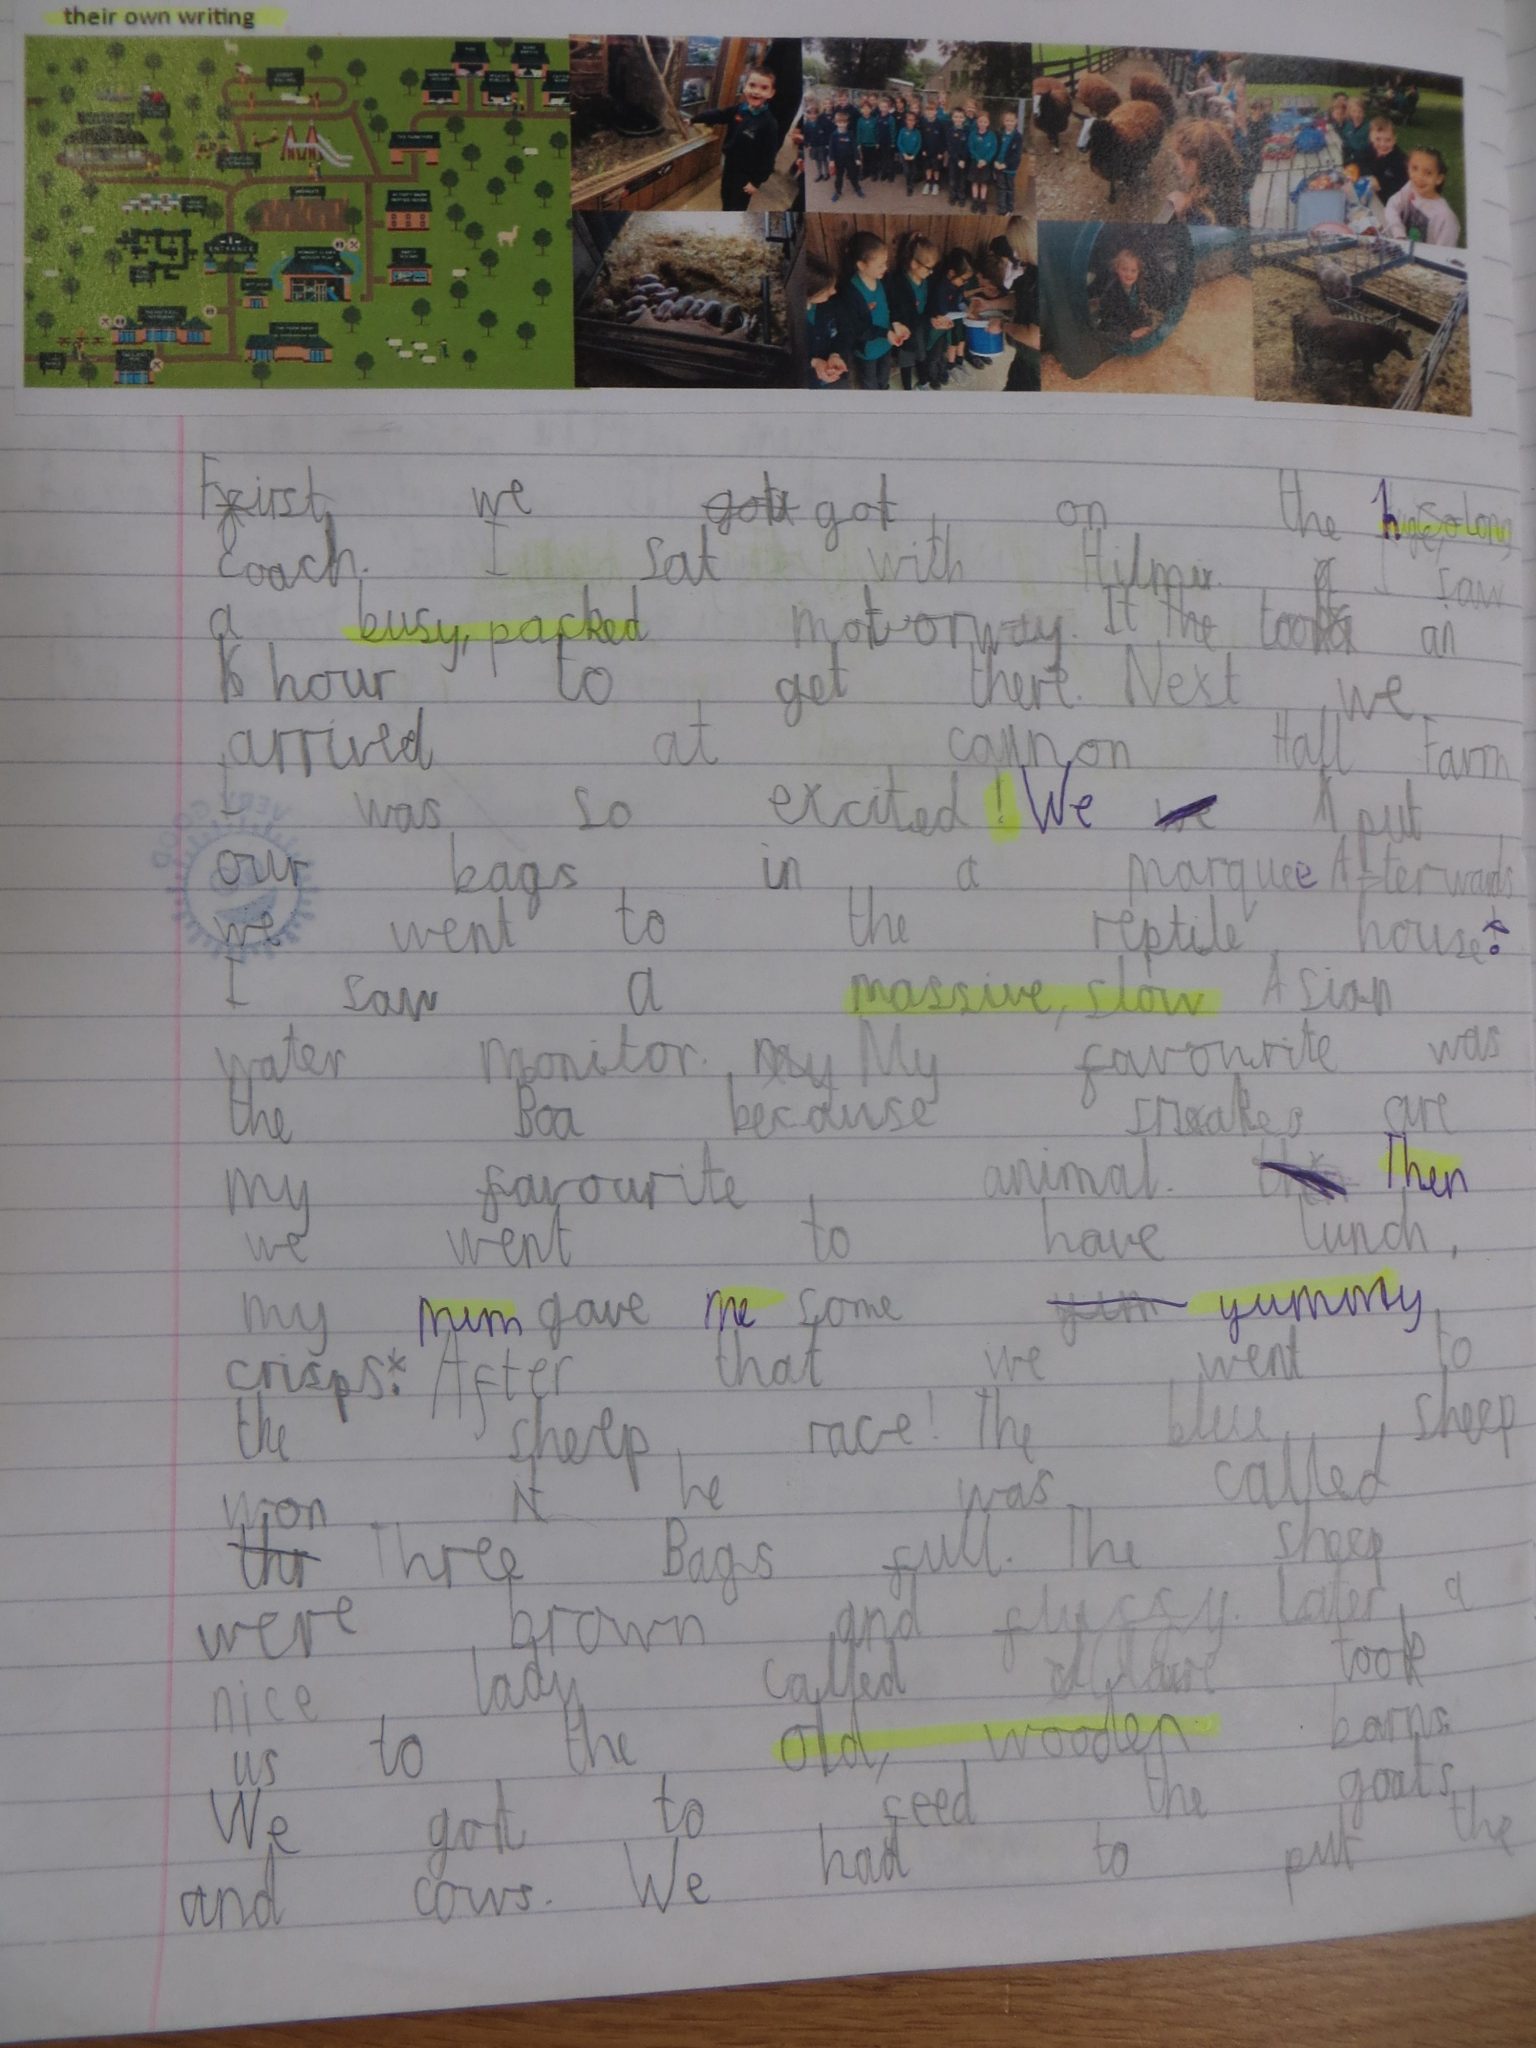 their own writing
ENTRANCE
First we got on the huge, long
Coach. I sat with I saw
a busy, packed motorway. It the took an
hour to get there. Next we
arrived at cannon Hall Farm
I was so excited! We put
our bags in a marquee Afterwards
we went to the reptile house.
I saw a massive, slow Asian
water monitor. My favourite was
the Boa because snakes are
my favourite animal. Then
we went to have lunch,
my mum gave me some yum yummy
crisps. After that we went to
the sheep race! The blue sheep
won he was called
thr Three Bags full. The sheep
were brown and fluffy. Later a
nice lady called took
us to the old, wooden barns.
We got to feed the goats
and cows. We had to put the
VERY GOOD